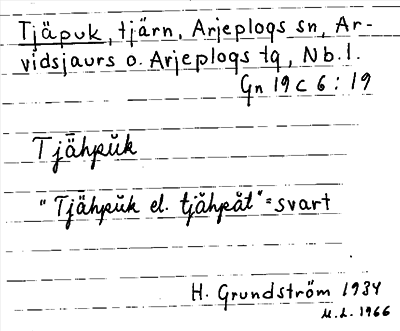 Tjäpuk, tjärn, Arjeplogs sn, Ar-
vidsjaurs o. Arjeplogs tg, Nb. l.
Gn 19 C 6 : 19
Tjāhpŭk
"Tjāhpŭk el. tjăhpăt" = svart
H. Grundström 1934
M.L. 1966